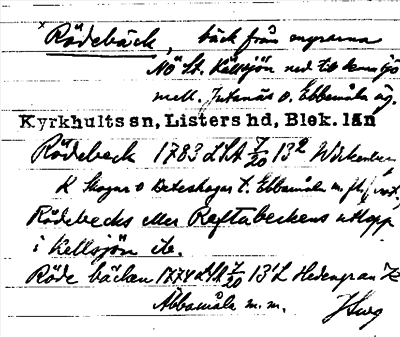 x Rödebäck, bäck från myrarna
NÖ St. Källsjön ned till
mell. Jutanäs o. Ebbemåla äg.
Kyrkhults sn, Listers hd, Blek. län
Rödebeck 1783 LSA 7/20 13²
K Skogar o Beteshagar t. Ebbamåla m. fl.
Rödebecks eller Raftabeckens utlopp
i Kellsjön ib.
Röde bäcken 1774 LSA 7/20 13¹ L Hedengran K
Abbamåla m. m.